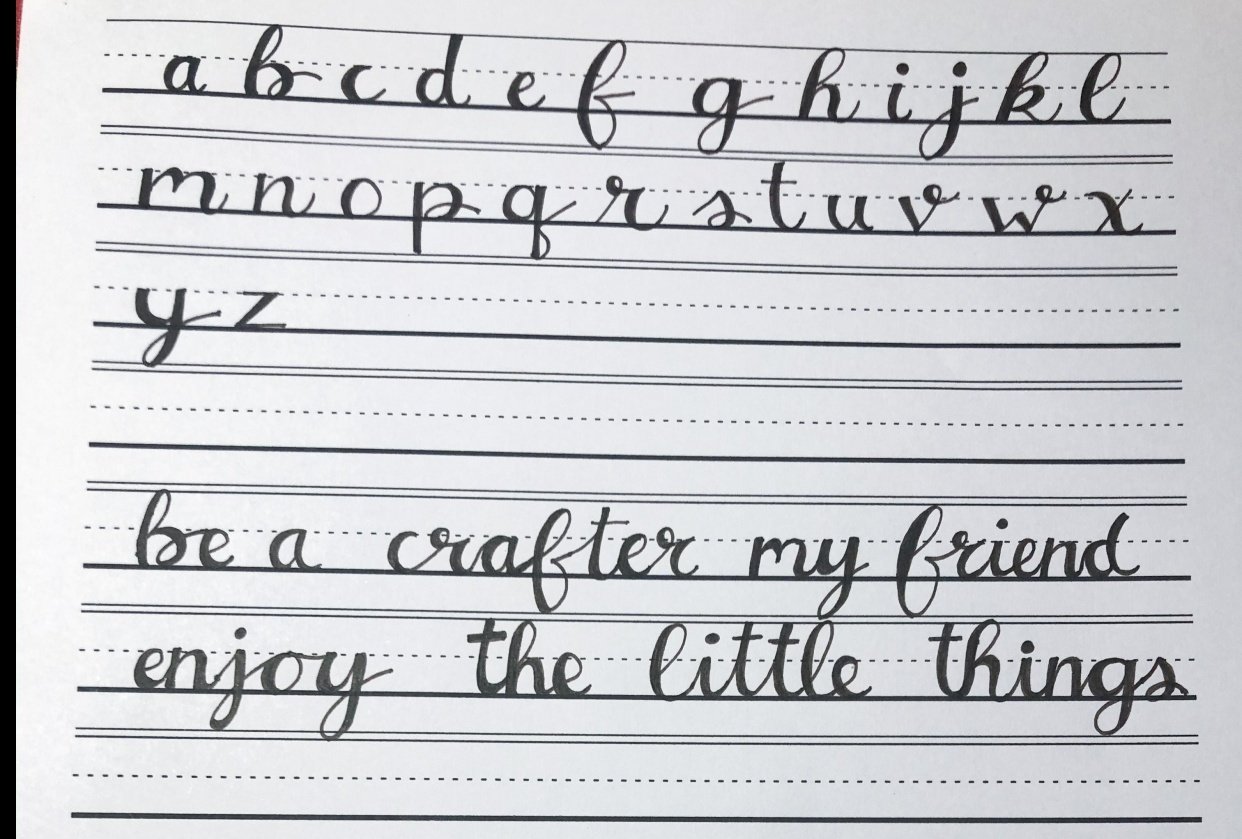 a b c d e f g h i j k l
m n o p q r s t u v w x
y z
be a crafter my friend
enjoy the little things